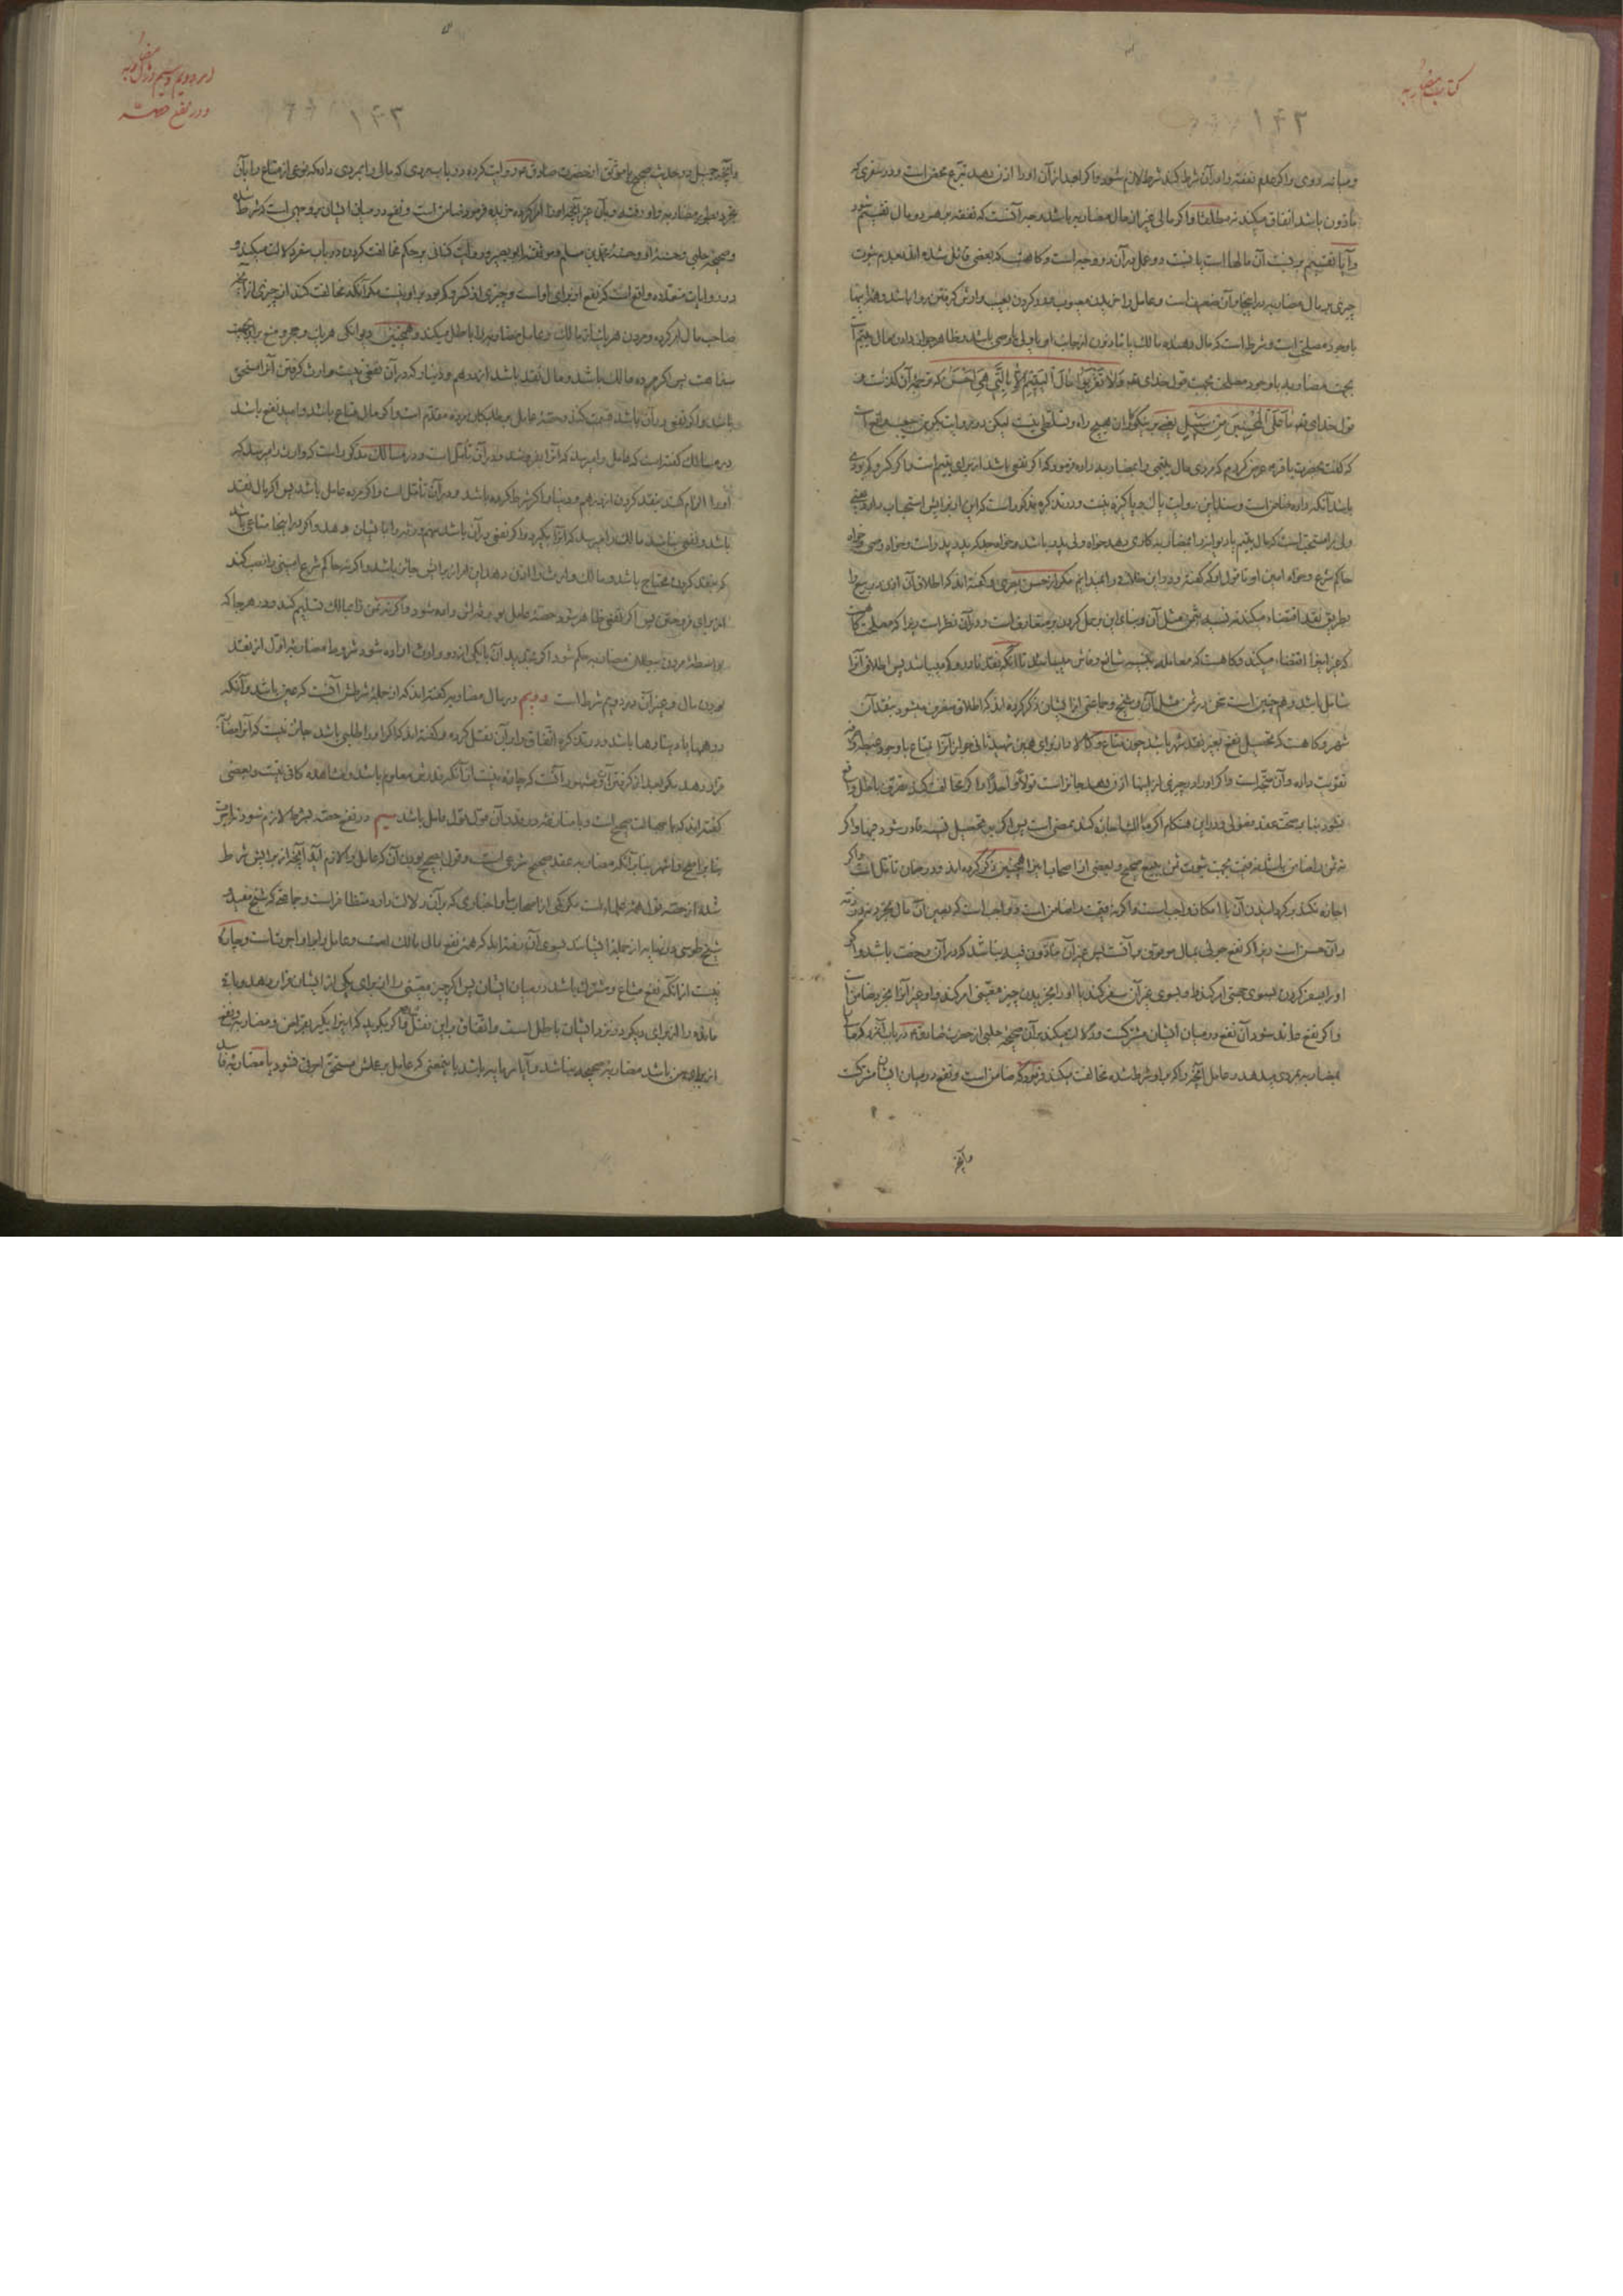 کتاب مضاربه
۱۴۳
و میانه روی و اگر عدم نفقه را در آن شرط کند شرط لازم میشود و اگر بعد از آن او را اذن دهد تبرع محض است و در سفری که
مأذون باشد انفاق میکند نه مطلقا و اگر مالی غیر از مال مضاربه باشد وجه آنست که نفقه بر هر دو مال تقسیم شود
و آیا تقسیم بر نسبت آن مالها است یا نسبت دو عمل در آن دو وجه است و گاهست که بعضی قائل شده اند بعدم ثبوت
چیزی بر مال مضاربه در اینجا و آن ضعیف است و عامل را خریدن معیوب و رد کردن بعیب و ارش گرفتن روا باشد و هذا
با وجود مصلحتی است و شرط است که مال دهنده مالک یا مأذون از جانب او یا ولی یا وصی باشد و ظاهر جواز دادن مال یتیم است
بجهت مضاربه با وجود مصلحت بجهت قول خدای تعه وَلا تَقْرَبُوا مالَ الْیَتیمِ اِلاّ بِالَّتی هِیَ اَحْسَنُ که ترجمه آن گذشت و
قول خدای تعه ما عَلَی الْمُحْسِنینَ مِنْ سَبیلٍ یعنی بر نیکوکاران هیچ راه و تسلطی نیست لیکن در روایت بکر بن حبیب واقع است
که گفت بحضرت باقر عه عرض کردم که مردی مال یتیمی را بمضاربه داده فرمود که اگر نفعی باشد از برای یتیم است و اگر کسر و کمبودی
باشد آنکه داده ضامن است و سند این روایت پاک و پاکیزه نیست و در تذکره مذکور است که این از برایش استحباب دارد یعنی
ولی را مستحب است که مال یتیم یا دیوانه را بمضاربه کاری دهد خواه ولی پدر باشد و خواه جد که پدر پدر است و خواه وصی خواه
حاکم شرع و خواه امین او تا قول او که گفته و در این خلافی را نمیدانم مگر از حسن بصری و گفته اند که اطلاق آن اذن در بیع را
بطریق نقد اقتضاء میکند نه نسیه بثمن مثل آن و بنای این بر حمل کردن بر متعارف است و در آن نظر است زیرا که مصلحتی گاهست
که غیر اینرا اقتضاء میکند و گاهست که معامله بنسیه شایع و فاش میباشد تا آنکه نقد نادر و کم میباشد پس اطلاق آنرا
شامل باشد و هم چنین است سخن در ثمن مثل آن و شیخ و جماعتی از ایشان ذکر کرده اند که اطلاق منصرف میشود بنقد آن
شهر و گاهست که تحصیل نفع بغیر نقد شهر باشد چون متاع و کالا و از برای همین شهید ثانی جواز آنرا بمتاع با وجود مصلحت
تقویت داده و آن متجه است و اگر او را در چیزی از اینها اذن دهد جائز است قولا واحدا و اگر مخالفت کند تصرف باطل واقع
نشود بنا بر صحت عقد فضولی و در این هنگام اگر مالک اجازه کند ممضی است پس اگر بر تحصیل نسیه قادر شود فبها و اگر
نه ثمن را ضامن باشد نه قیمت بجهت ثبوت ثمن ببیع صحیح و بعضی از اصحاب اینرا همچنین ذکر کرده اند و در ضمان تأمل است و اگر
اجازه نکند برگردانیدن آن با امکان واجب است و اگر نه قیمت را ضامن است
او را بسفر کردن بسوی جهتی امر کند و او بسوی غیر آن سفر کند یا او را بخریدن چیز معینی امر کند و او غیر آنرا بخرد ضامن است
و اگر نفع عائد شود آن نفع در میان ایشان مشترکست و دلالت میکند بر آن صحیحه حلبی از حضرت صادق عه در باب آنمرد که مال
بمضاربه بمردی میدهد و عامل آنچه را که بر او شرط شده مخالفت میکند فرمود که ضامن است و نفع در میان ایشان مشترکست
و آنچه
در دویم و سیم در مال مضاربه
و در نفع حصه
۱۴۳
و آنچه جمیل در حدیث صحیح یا موثق از حضرت صادق عه روایت کرده در باب مردی که مالی را بمردی داده که نوعی از متاع را بآن
بخرد بطور مضاربه و او رفته و بآن غیر آنچه او را امر کرده خریده فرمود ضامن است و نفع در میان ایشان بر وجهی است که شرط شده
و صحیحه حلبی و حسنه او و حسنه محمد بن مسلم و موثقه ابو بصیر و روایت کنانی بر حکم مخالفت کردن در باب سفر دلالت میکند و
در روایات متعدده واقع است که نفع از برای او است و چیزی از کسر و کمبود بر او نیست مگر آنکه مخالفت کند از چیزی از آنچه
صاحب مال امر کرده و مردن هر یک از مالک و عامل مضاربه را باطل میکند و همچنین دیوانگی هر یک و حجر و منع بر او بجهت
سفاهت پس اگر مرده مالک باشد و مال نقد باشد از درهم و دینار که در آن نفعی نیست وارث گرفتن آنرا مستحق
باشد و اگر نفعی در آن باشد قسمت کند و حصه عامل بر طلبکاران مرده مقدم است و اگر مال متاع باشد و امید نفع باشد
در مسالک گفته است که عامل را میرسد که آنرا بفروشد و در آن تأمل است و در مسالک مذکور است که وارث را میرسد که
او را الزام کند بنقد کردن از درهم و دینار اگر شرط کرده باشد و در آن تأمل است و اگر مرده عامل باشد پس اگر مال نقد
باشد و نفعی نباشد مالک را میرسد که آنرا بگیرد و اگر نفعی در آن باشد سهم ورثه را بایشان دهد و اگر در اینجا متاعی باشد
که بنقد کردن محتاج باشد و مالک وارث را اذن دهد این امر از برایش جائز باشد و اگر نه حاکم شرع امینی را نصب کند
از برای فروختن پس اگر نفعی ظاهر شود حصه عامل بوارثش داده شود و اگر نه ثمن را بمالک تسلیم کند و در هر جا که
بواسطه مردن ببطلان مضاربه حکم شود اگر تجدید آن با یکی از دو وارث اراده شود شروط مضاربه اول از نقد
بودن مال و غیر آن در دویم شرط است دویم در مال مضاربه گفته اند که از جمله شرطش آنست که عین باشد و آنکه
درهمها یا دینارها باشد و در تذکره اتفاق را در آن نقل کرده و گفته اند که اگر او را طلبی باشد جائز نیست که آنرا بمضاربه
قرار دهد مگر بعد از گرفتن آن و مشهور آنست که چاره نیست از آنکه قدرش معلوم باشد و مشاهده کافی نیست و بعضی
گفته اند که با جهالت صحیح است و با منازعه در قدر آن قول قول عامل باشد سیم در نفع حصه بشرط لازم شود
بنا بر اصح و اشهر بنا بر آنکه مضاربه عقد صحیح شرعی است و قول بصحیح بودن آن که عامل را لازم آید آنچه از برایش شرط
شده از حصه قول همه علماء است مگر کمی از اصحاب ما و اخباری که بر آن دلالت دارد متظافر است و جماعتی که شیخ مفید و
شیخ طوسی در نهایه از جمله ایشانند بسوی آن رفته اند که همه نفع مال مالک است و عامل را اجرت است و چاره
نیست از آنکه نفع مشاع و مشترک باشد در میان ایشان پس اگر چیز معینی را از برای یکی از ایشان قرار دهد و باقی
مانده را از برای دیگر و نزد ایشان باطل است و اتفاق بر این نقل شده و اگر بگوید که اینرا بگیر بقراض و مضاربه و نفع
از برای من باشد مضاربه صحیحه نباشد و آیا سرمایه باشد باینمعنی که عامل بر عملش مستحق اجرتی نشود یا مضاربه فاسد